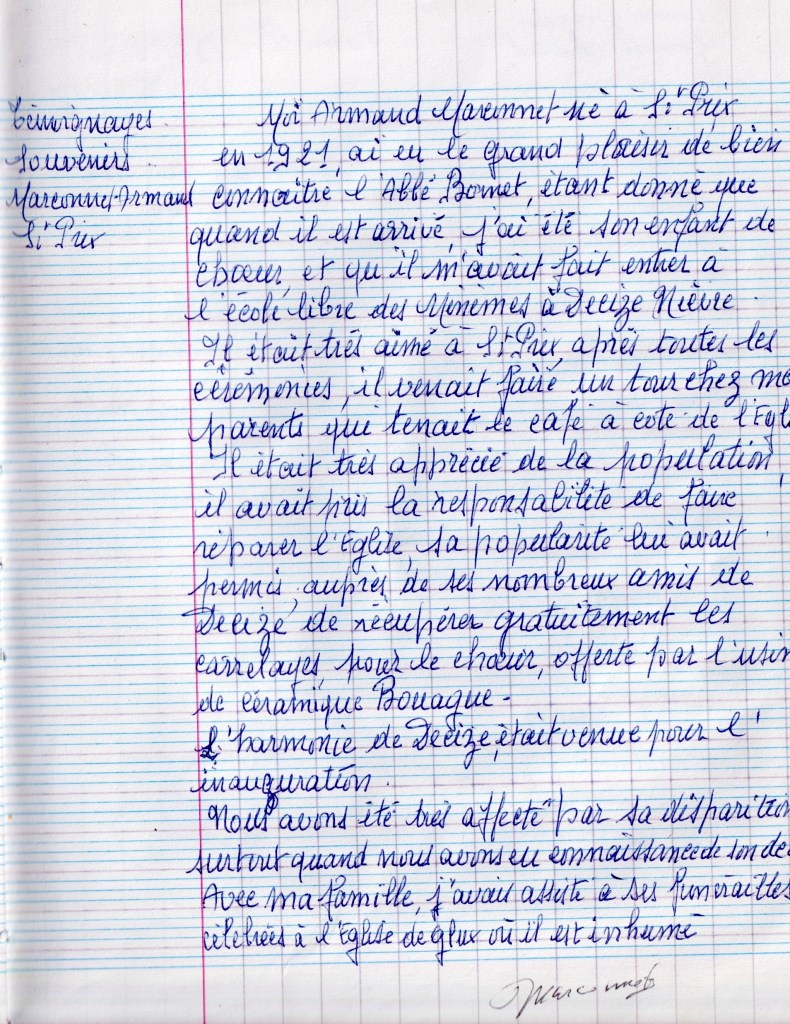 Témoignages
Souvenirs
Marconnet Armand
St Prix
Moi Armand Marconnet né à St Prix
en 1921, ai eu le grand plaisir de bien
connaitre l'Abbé Bornet, étant donné que
quand il est arrivé, j'ai été son enfant de
chœur, et qu'il m'avait fait entrer à
l'école libre des Minimes à Decize Nièvre.
Il était très aimé à St Prix, après toutes les
cérémonies, il venait faire un tour chez me
parents qui tenait le café à coté de l'Egl
Il était très apprécié de la population,
il avait pris la responsabilité de faire
réparer l'Eglise, sa popularité lui avait
permis, auprès de ses nombreux amis de
Decize de récupérer gratuitement les
carrelages, pour le chœur, offerte par l'usin
de céramique Bouague -
L'harmonie de Decize, était venue pour l'
inauguration.
Nous avons été très affecté par sa disparition
surtout quand nous avons eu connaissance de son de
Avec ma famille, j'avais assisté à ses funérailles
célébrées à l'Eglise de glux où il est inhumé
Marconnet